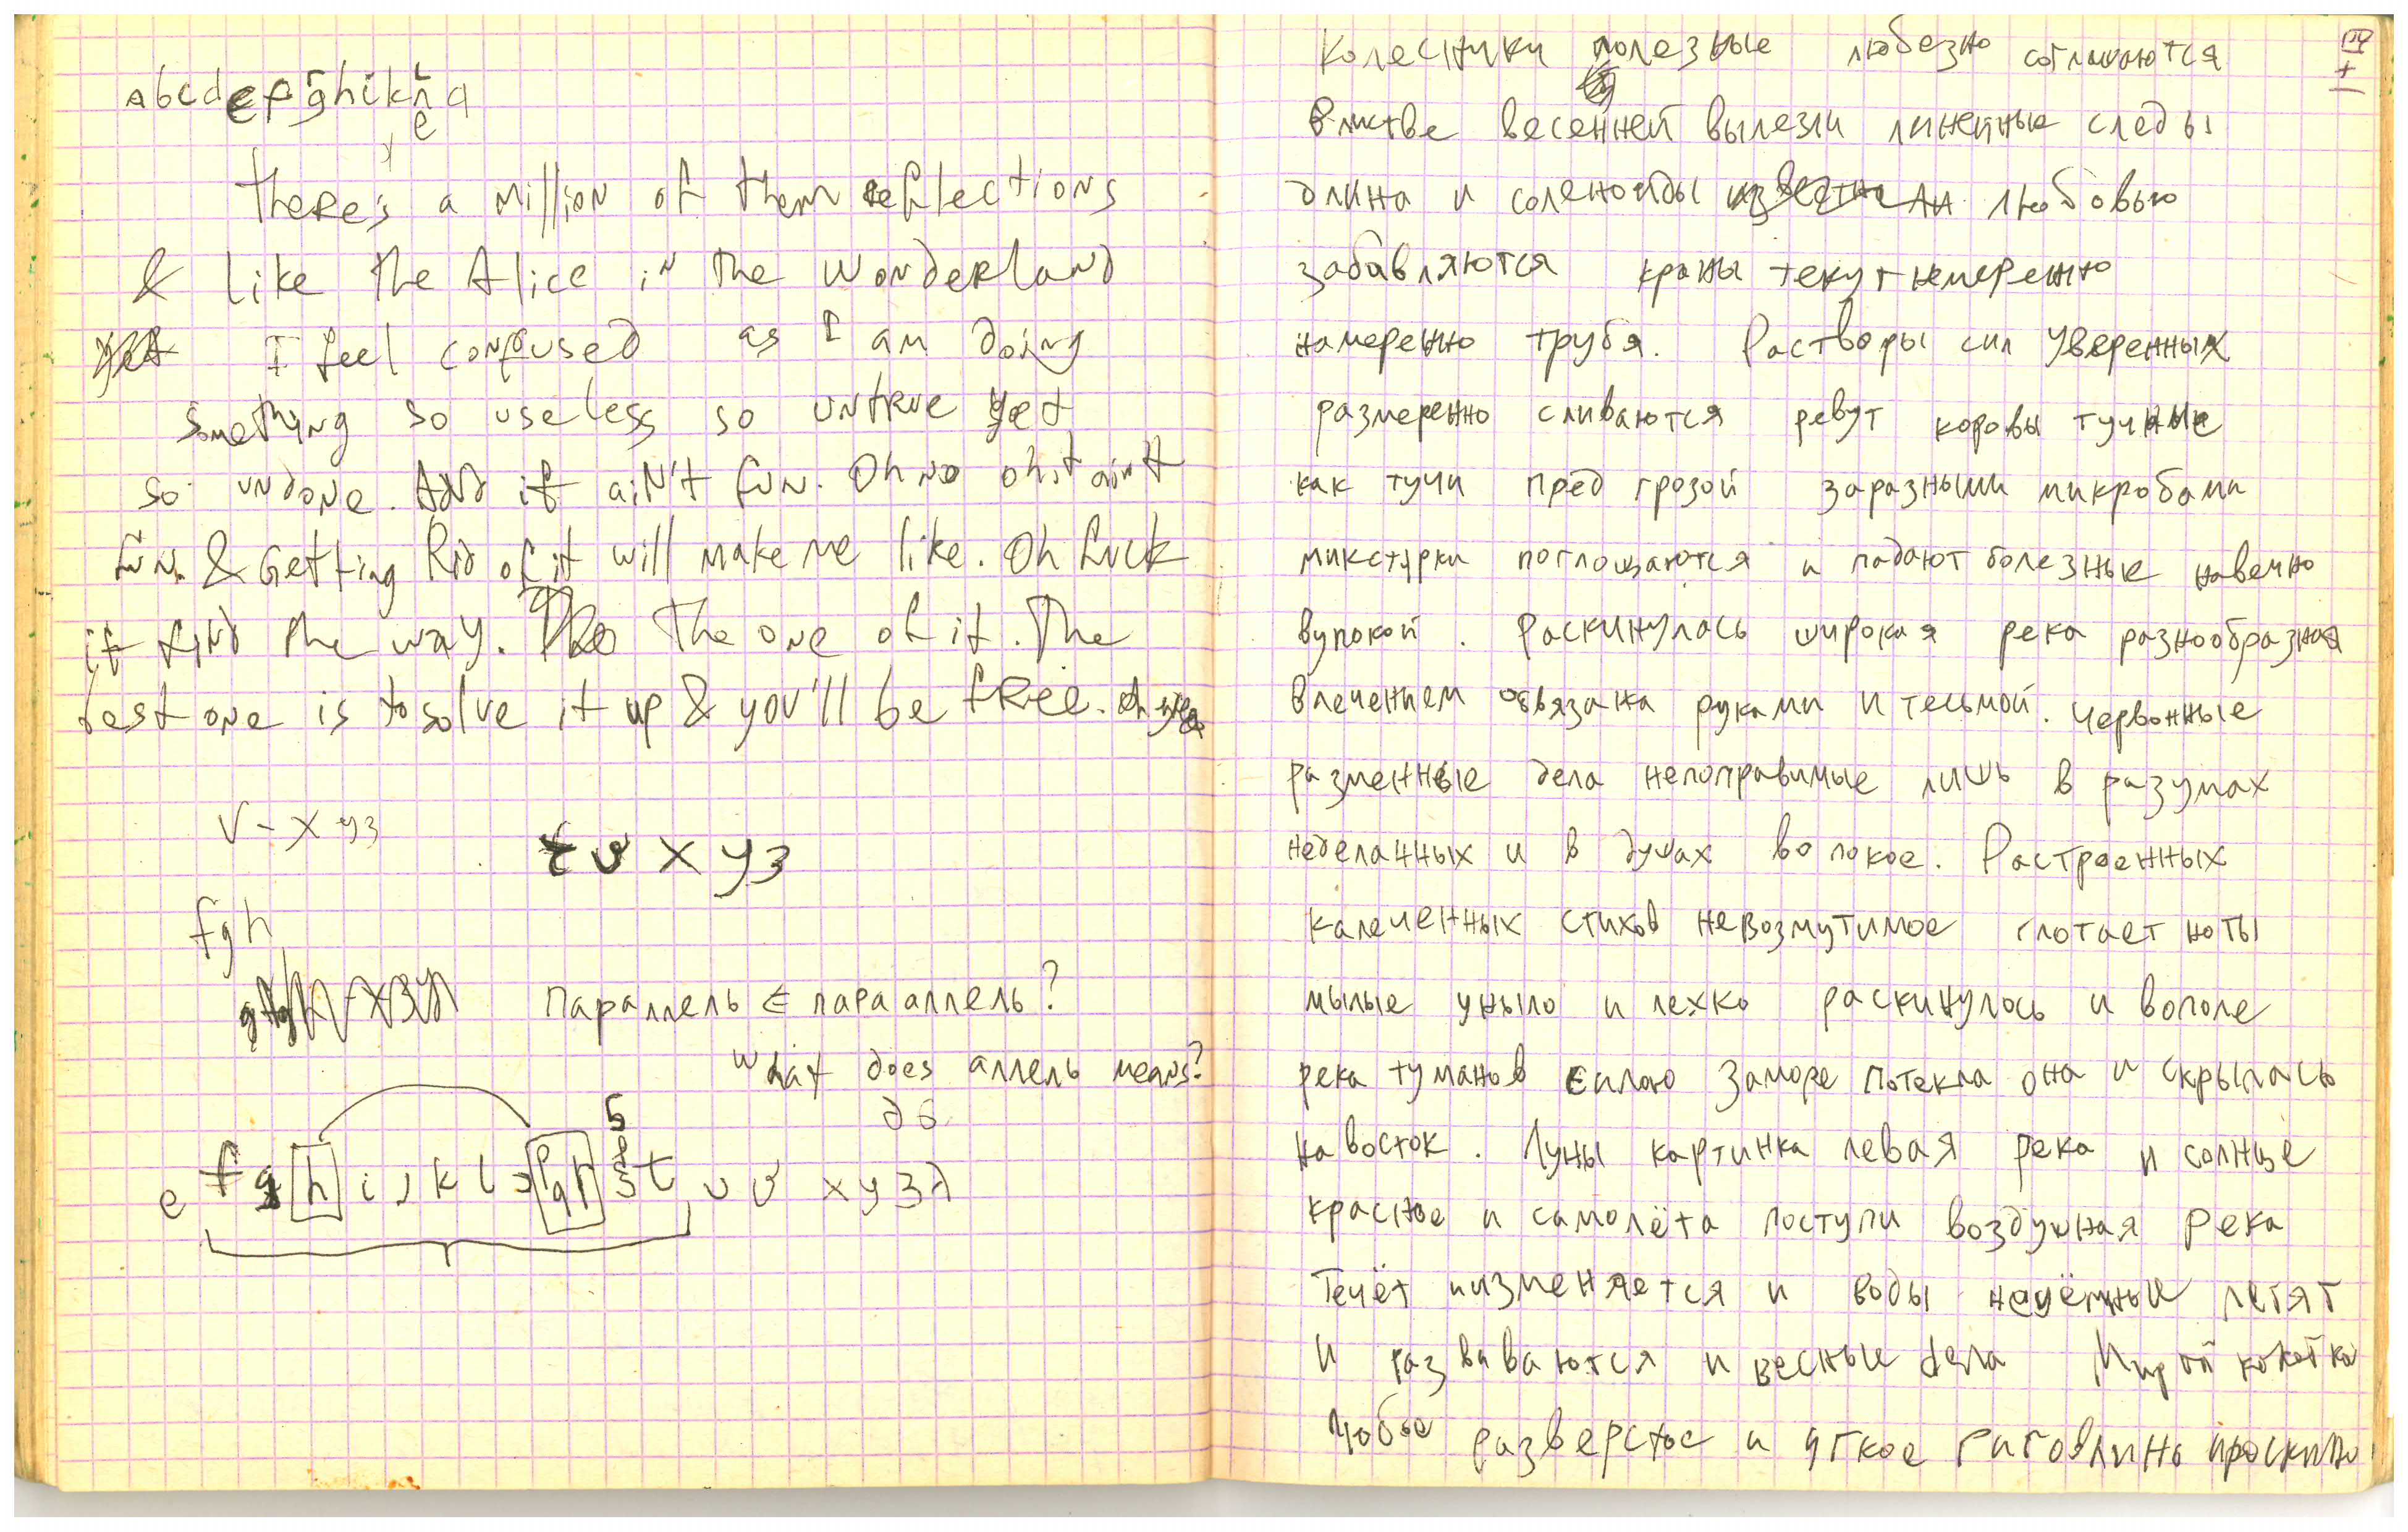 abcdefghikn a
e
There's a million of them reflections
& like the Alice in the Wonderland
I feel confused as I am doing
something so useless so untrue yet
so undone. And it ain't fun. Oh no oh it ain't
fun. & Getting Rid of it will make me like. Oh fuck
it find the way. The one of it. The
best one is to solve it up & you'll be free.
v - x y z
t v x y z
f g h
Параллель ∈ пара аллель?
What does аллель means?
5
e f g h i j k l p q r s t u v x y z
Колесники полезные любезно соглашаются
в листве весенней вылезли линейные следы
длина и соленоиды любовью
забавляются краны текут немеренно
намеренно трубя. Растворы сил уверенных
размеренно сливаются ревут коровы тучные
как тучи пред грозой заразными микробами
микстурки поглощаются и падают болезные навечно
вупокой. Раскинулась широкая река разнообразная
влечением обвязана руками и тесьмой. Червонные
разменные дела непоправимые лишь в разумах
неделанных и в душах во покое. Растроенных
калеченных стихов невозмутимое глотает ноты
милые уныло и лехко раскинулось и вополе
река туманов силою Заморе потекла она и скрылась
на восток. Луны картинка левая река и солнце
красное и самолёта поступи воздушная река
Течёт иизменяется и воды летят
И развиваются и весные дела
разверстое и